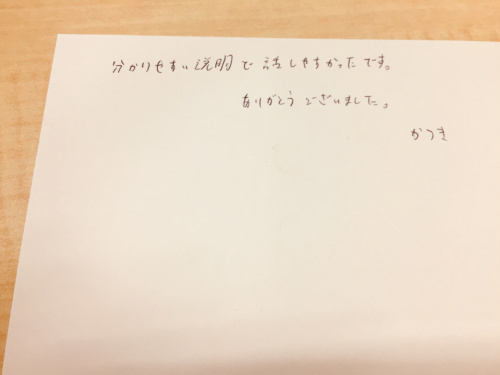 分かりやすい説明で話しやすかったです。
ありがとうございました。
かつき